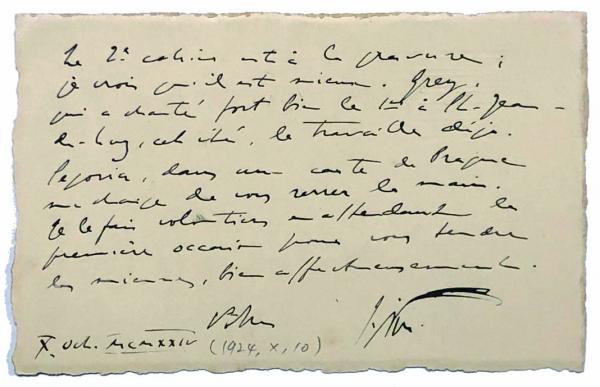 Le 2e cahier est à la gravure ;
je crois qu'il est mieux. Grey,
qui a chanté fort bien le 1er à St-Jean-
de-Luz, cet été, le travaille déjà.
dans une carte de Prague
me charge de vous serrer la main.
Je le fais volontiers en attendant la
première occasion pour vous tendre
les miennes, bien affectueusement.
X. Oct. MCMXXIV (1924, X, 10)